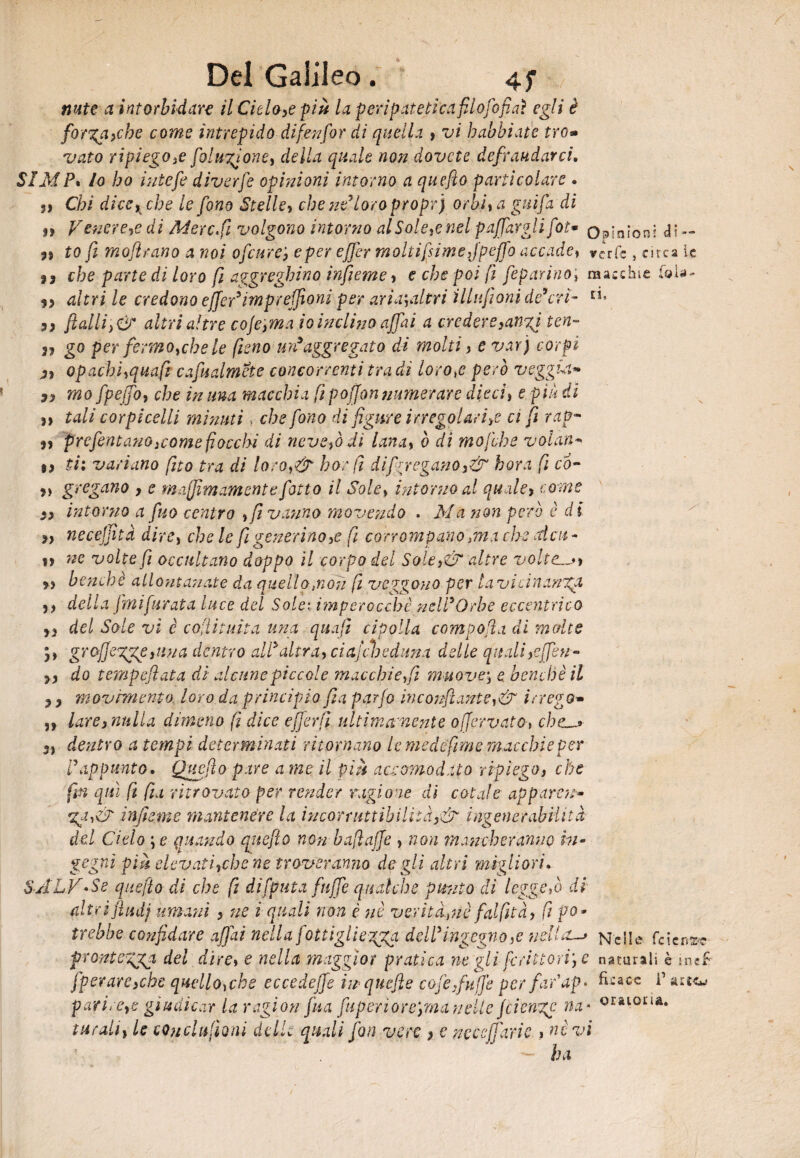 Del Galileo. 45
nute a intorbidare il Cielo,e più la peripatetica filosofia? egli è
forza,che come intrepido difensor di quella, vi habbiate tro-
vato ripiego,e soluzione, della quale non dovete defraudarci.
SIMP. Io ho intese diverse opinioni intorno a questo particolare.
„ Chi dice, che le sono Stelle, che ne' loro proprj orbi, a guisa di
„ Venere,e di Merc.si volgono intorno al Sole,e nel passargli sot-
„ to si mostrano a noi oscure; e per esser moltissime,spesso accade,
„ che parte di loro si aggreghino insieme, e che poi si separino;
„ altri le credono esser'impressioni per aria;altri illusioni de'cri-
„ stalli,& altri altre cose;ma io inclino assai a credere,anzi ten-
„ go per fermo,che le sieno un'aggregato di molti, e varj corpi
„ opachi,quasi casualmẽte concorrenti tra di loro,e però veggia-
„ mo spesso, che in una macchia si posson numerare dieci, e più di
„ tali corpicelli minuti, che sono di figure irregolari,e ci si rap-
„ presentano,come fiocchi di neve,ò di lana, ò di mosche volan-
„ ti: variano sito tra di loro,& hor si disgregano,& hora si cõ-
„ gregano, e massimamente sotto il Sole, intorno al quale, come
„ intorno a suo centro, si vanno movendo. Ma non però è di
„ necessità dire, che le si generino,e si corrompano,ma che alcu-
„ ne volte si occultano doppo il corpo del Sole,& altre volte,
„ benchè allontanate da quello,non si veggono per la vicinanza
„ della smisurata luce del Sole: imperocchè nell'Orbe eccentrico
„ del Sole vi è costituita una quasi cipolla composta di molte
„ grossezze,una dentro all'altra, ciascheduna delle quali,essen-
„ do tempestata di alcune piccole macchie,si muove; e benchè il
„ movimento loro da principio sia parso inconstante,& irrego-
„ lare, nulla dimeno si dice essersi ultimamente osservato, che
„ dentro a tempi determinati ritornano le medesime macchie per
l'appunto. Questo pare a me il più accomodato ripiego, che
fin quì si sia ritrovato per render ragione di cotale apparen-
za,& insieme mantenere la incorruttibilità,& ingenerabilità
del Cielo; e quando questo non bastasse, non mancheranno in-
gegni più elevati,che ne troveranno de gli altri migliori.
SALV. Se questo di che si disputa fusse qualche punto di legge,ò di
altri studj umani, ne i quali non è nè verità,nè falsità, si po-
trebbe confidare assai nella sottigliezza dell'ingegno,e nella
prontezza del dire, e nella maggior pratica ne gli scrittori; e
sperare,che quello,che eccedesse in queste cose,fusse per far'ap-
parire,e giudicar la ragion sua superiore;ma nelle scienze na-
turali, le conclusioni delle quali son vere, e necessarie, nè vi
ha
Opinioni di-
verse, circa le
macchie sola-
ri.
Nelle scienze
naturali è inef-
ficace l'arte
oratoria.